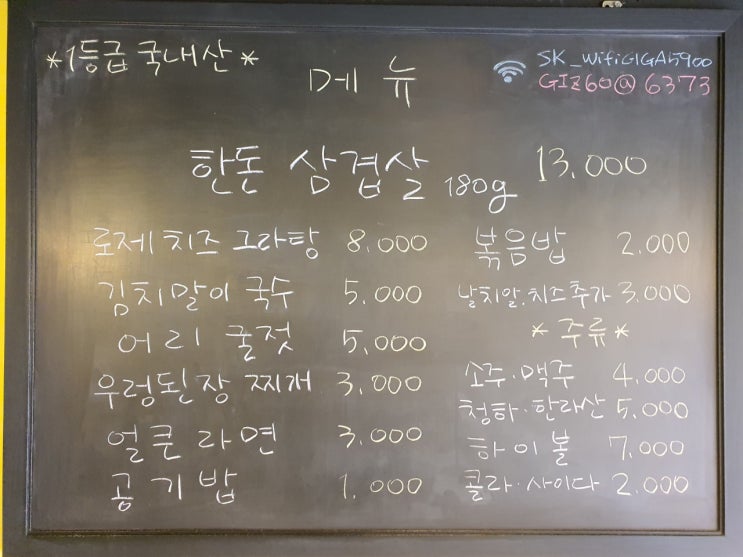 *1등급 국내산*
메뉴
SK_WifiGIGA5900
GIZ60@6373
한돈 삼겹살 180g 13.000
로제치즈 그라탕 8.000
김치말이 국수 5.000
어리굴젓 5.000
우렁된장 찌개 3.000
얼큰라면 3.000
공기밥 1.000
볶음밥 2.000
날치알.치즈추가 3.000
*주류*
소주·맥주 4.000
청하·한라산 5.000
하이볼 7.000
콜라·사이다 2.000